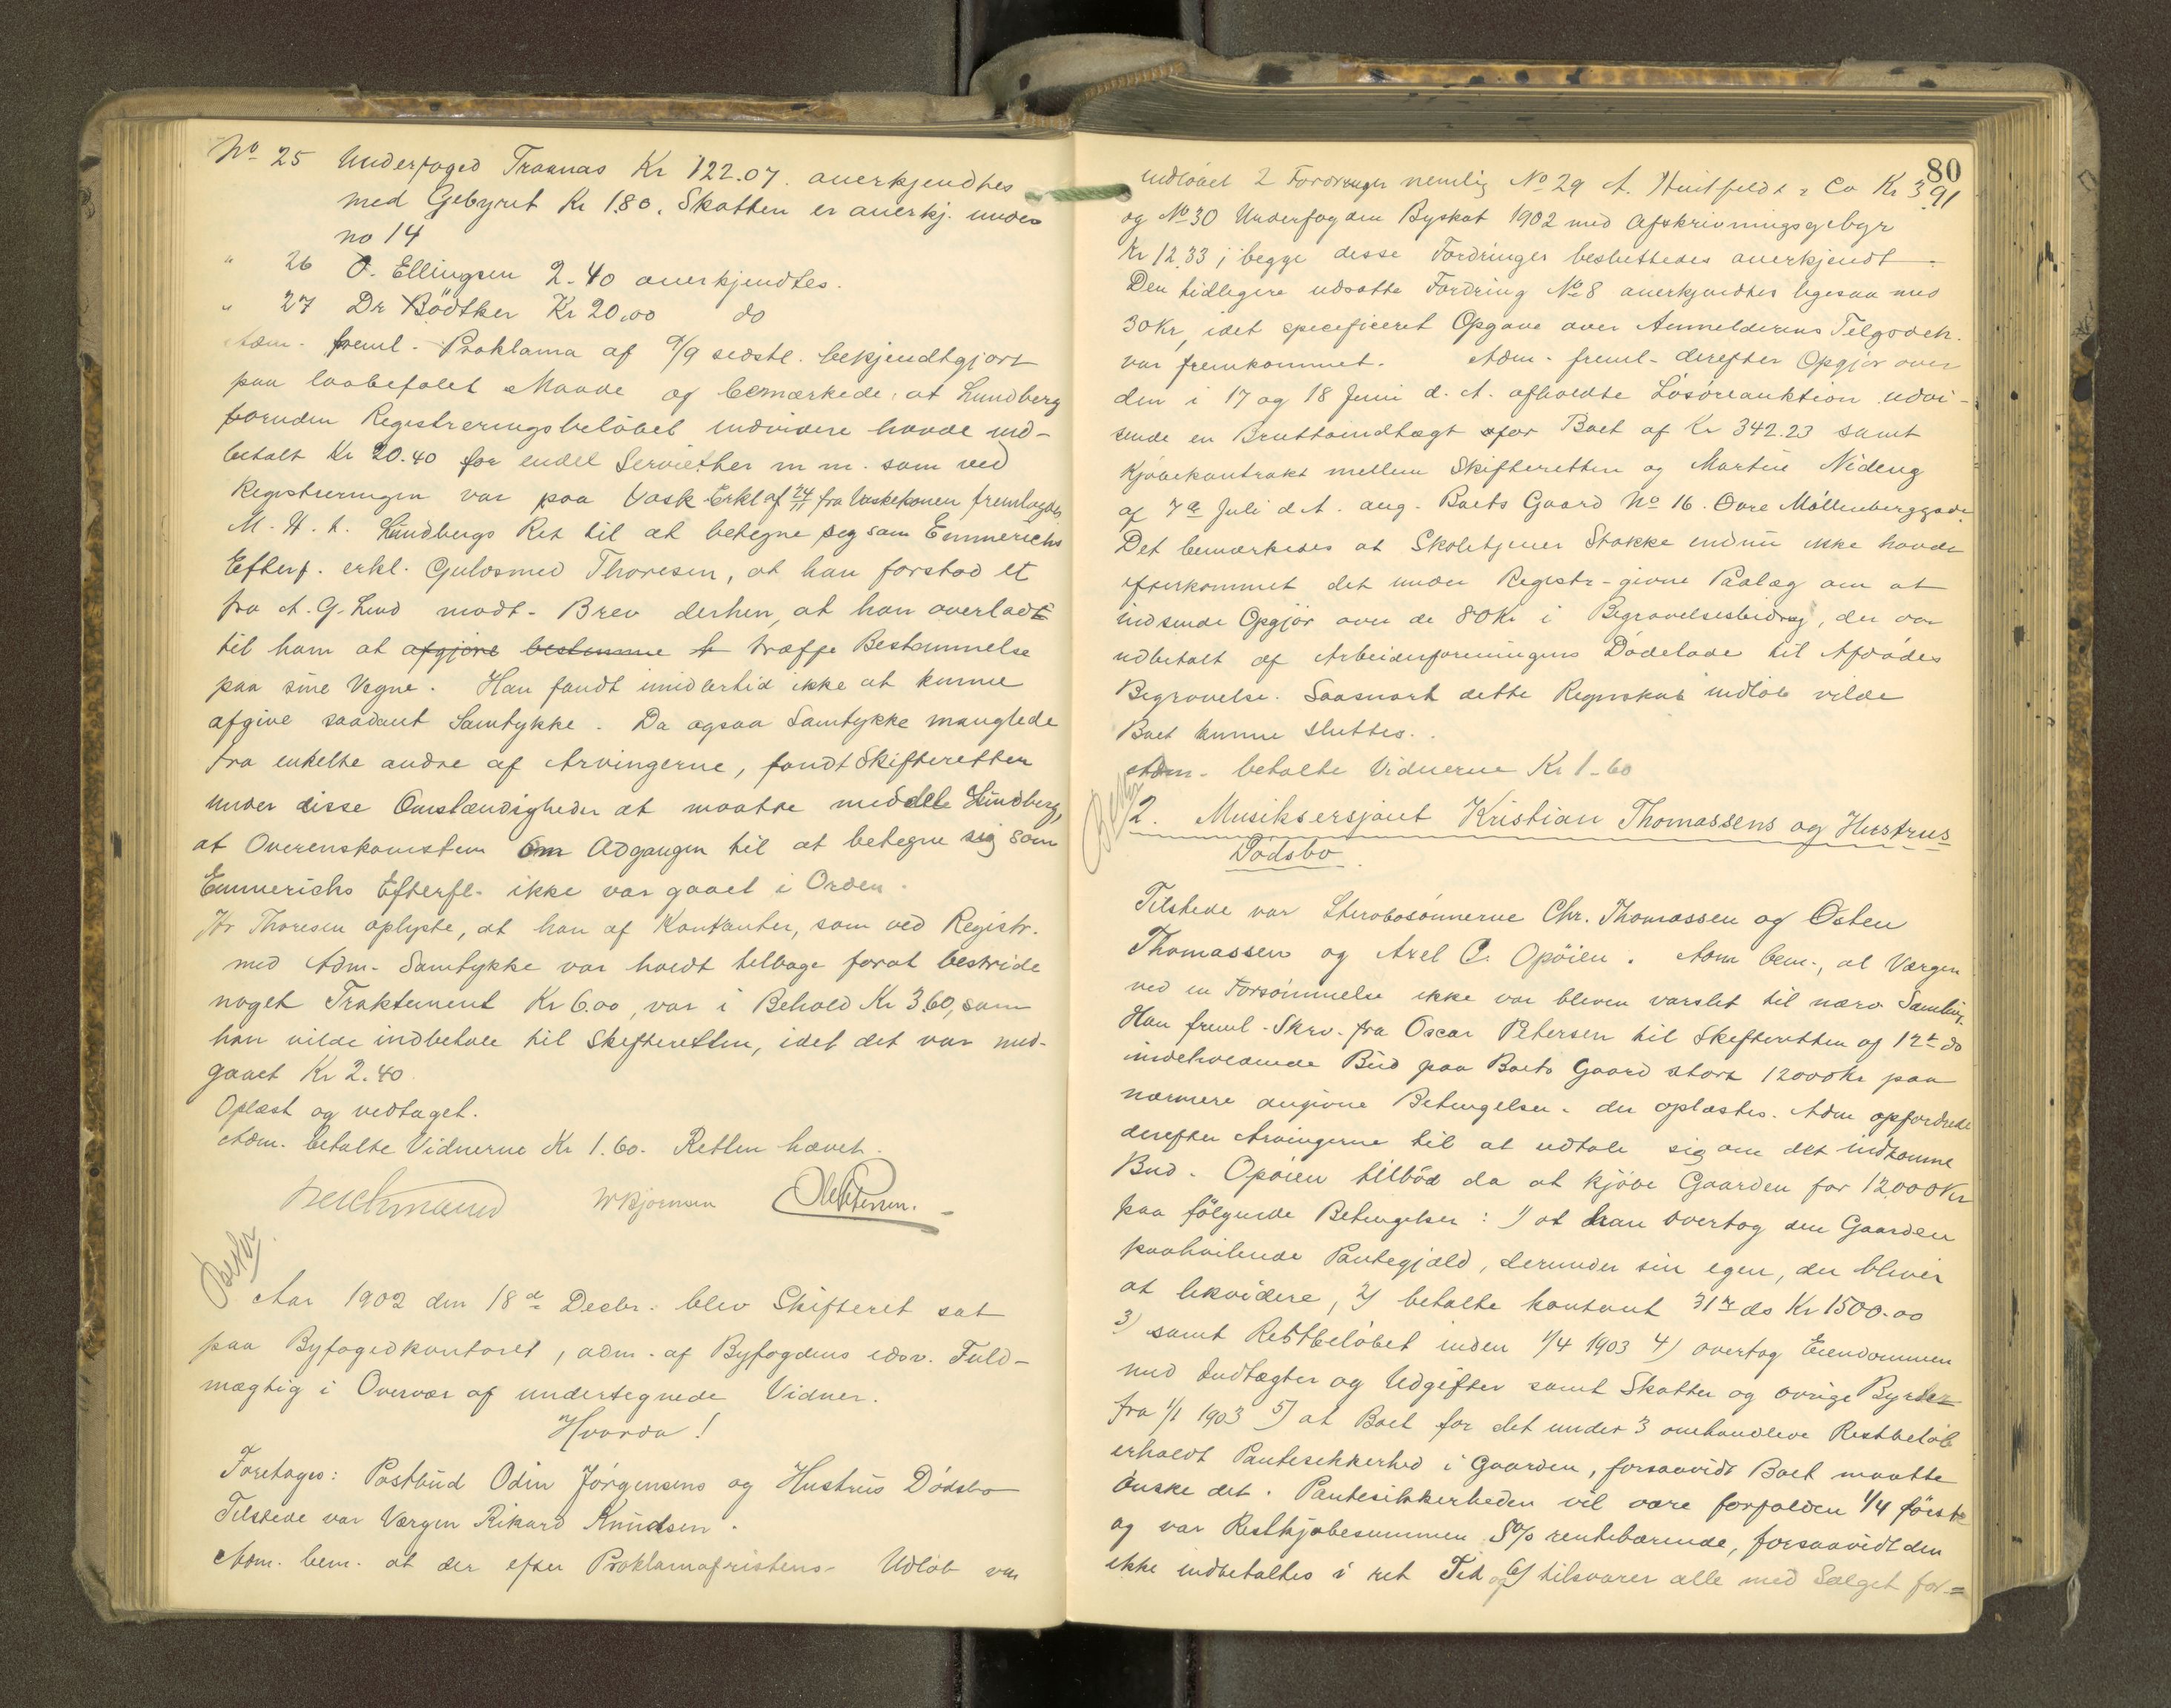 No 25 Underfoged Traanas Kr 122.07. anerkjendtes
med Gebyret Kr 1.80. Skatten er anerkj. under
no 14
" 26 O. Ellingsen 2.40 anerkjendtes.
" 27 Dr Bödtker Kr 20.00 do
Adm. freml. Proklama af 9/9 sidstl. bekjendtgjort
paa lovbefalet Maade og bemærkede, at Lundberg
foruden Registreringsbeløbet endvidere havde ind-
betalt Kr 20.40 for endel Servietter m m. som ved
Registreringen var paa Vask. Erkl af 24/11 fra Vaskekonen fremlagdes
M. H. t. Lundbergs Ret til at betegne sig som Emmerichs
Efterf. erkl. Guldsmed Thoresen, at han forstod et
fra A. G. Lund modt. Brev derhen, at han overlod
til ham at afgjøre bestemme træffe Bestemmelse
paa sine Vegne. Han fandt imidlertid ikke at kunne
afgive saadant Samtykke. Da ogsaa Samtykke manglede
fra enkelte andre af Arvingerne, fandt Skifteretten
under disse Omstændigheder at maatte meddele Lundberg,
at Overenskomsten om Adgangen til at betegne sig som
Emmerichs Efterfl. ikke var gaaet i Orden.
Hr Thoresen oplyste, at han af Kontanter, som ved Registr.
med Adm. Samtykke var holdt tilbage forat bestride
noget Traktement Kr 6.00, var i Behold Kr 3.60, som
han vilde indbetale til Skifteretten, idet det var med-
gaaet Kr 2.40.
Oplæst og vedtaget.
Adm. betalte Vidnerne Kr 1.60. Retten hævet.
W Bjørnsen
Aar 1902 den 18de Decbr. blev Skifteret sat
paa Byfogedkontoret, adm. af Byfogdens edsv. Fuld-
mægtig i Overvær af undertegnede Vidner.
Hvorda!
Foretages: Postbud Odin Jørgensens og Hustrus Dødsbo
Tilstede var Værgen Rikard Knudsen.
Adm. bem. at der efter Proklamafristens Udløb var
80
indløbet 2 Fordringer nemlig No 29 A. Huitfeldt & Co Kr 3.91
og No 30 Underfogden Byskat 1902 med Afskrivningsgebyr
Kr 12.33; begge disse Fordringer besluttedes anerkjendt.
Den tidligere udsatte Fordring No 8 anerkjendtes ligesaa med
30 Kr, idet specificeret Opgave over Anmelderens Tilgodeh.
var fremkommet. Adm. freml. derefter Opgjør over
den i 17 og 18 Juni d. A. afholdte Løsøreauktion udvi-
sende en Bruttoindtægt for Boet af Kr 342.23 samt
Kjøbekontrakt mellem Skifteretten og Martin Nideng
af 7de Juli d. A. ang. Boets Gaard No 16. Øvre Møllenberggade.
Det bemærkedes at Skoletjener Stokke endnu ikke havde
efterkommet det under Registr. givne Paalæg om at
indsende Opgjør over de 80 Kr i Begravelsesbidrag, der var
udbetalt af Arbeiderforeningens Dødelade til Afdødes
Begravelse. Saasnart dette Regnskab indløb vilde
Boet kunne sluttes.
Adm. betalte Vidnerne Kr 1.60
2. Musiksersjant Kristian Thomassens og Hustrus
Dødsbo.
Tilstede var Stervbosønnerne Chr. Thomassen og Osten
Thomassen og Axel C. Opøien. Adm bem., at Værgen
ved en Forsømmelse ikke var bleven varslet til nærv. Samling.
Han freml. Skrv. fra Oscar Petersen til Skifteretten af 12te ds
indeholdende Bud paa Boets Gaard stort 12000 Kr paa
nærmere angivne Betingelser. der oplæstes. Adm opfordrede
derefter Arvingerne til at udtale sig om det indkomne
Bud. Opøien tilbød da at kjøbe Gaarden for 12,000 Kr
paa følgende Betingelser: 1) at han overtog den Gaarden
paahvilende Pantegjæld, derunder sin egen, der bliver
at likvidere, 2) betalte kontant 31te ds Kr 1500.00
3) samt Restbeløbet inden 1/4 1903 4) overtog Eiendommen
med Indtægter og Udgifter samt Skatter og øvrige Byrder
fra 1/1 1903 5) at Boet for det under 3 omhandlede Restbeløb
erholdt Pantesikkerhed i Gaarden, forsaavidt Boet maatte
ønske det. Pantesikkerheden vil være forfalden 1/4 først
og var Restkjøbesummen 5% rentebærende, forsaavidt den
ikke indbetaltes i ret Tid og 6) tilsvarer alle med Salget for-